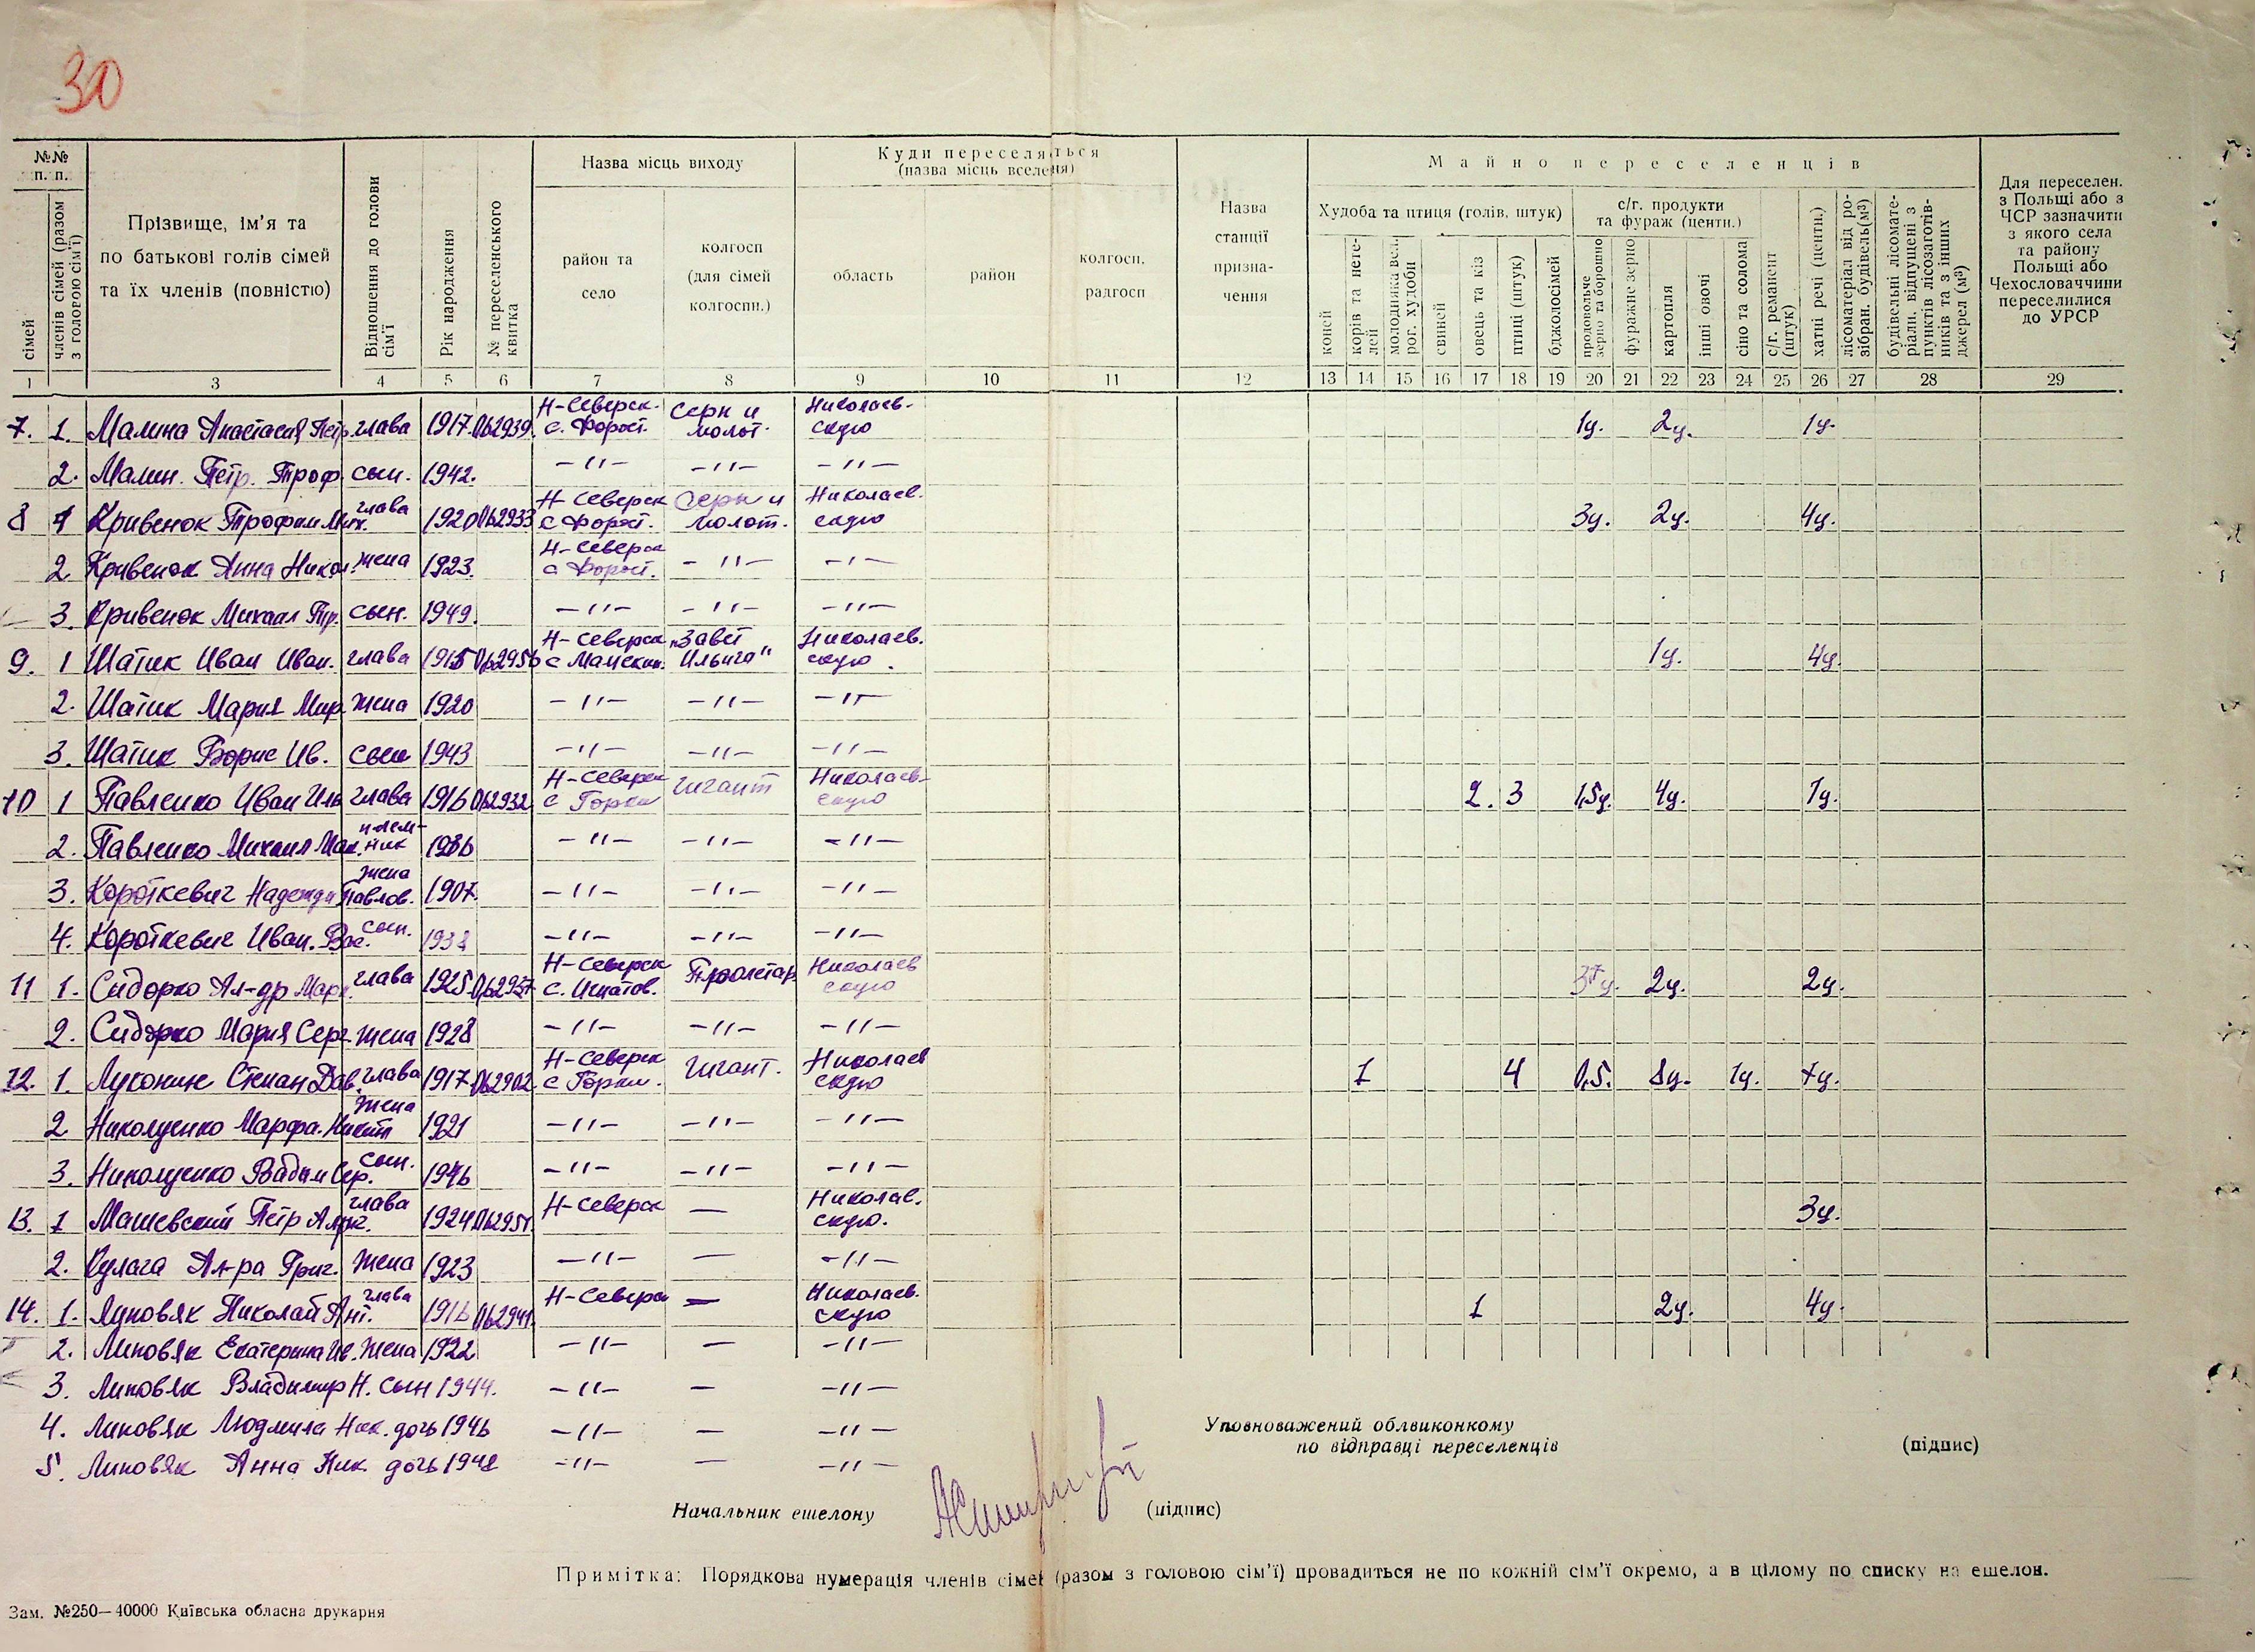 30
№№ п. п.
сімей
членів сімей (разом з головою сім'ї)
Прізвище, ім'я та по батькові голів сімей та їх членів (повністю)
Відношення до голови сім'ї
Рік народження
№ переселенського квитка
Назва місць виходу
район та село
колгосп (для сімей колгоспн.)
Куди переселяються (назва місць вселення)
область
район
колгосп, радгосп
Назва станції призначення
Майно переселенців
Худоба та птиця (голів, штук)
коней
корів та нетелей
молодняка вел. рог. худоби
свиней
овець та кіз
птиці (штук)
бджолосімей
с/г. продукти та фураж (центн.)
продовольче зерно та борошно
фуражне зерно
картопля
інші овочі
сіно та солома
с/г. реманент (штук)
хатні речі (центн.)
лісоматеріал від розібран. будівель (м³)
будівельні лісоматеріали, відпущені з пунктів лісозаготівників та з інших джерел (м³)
Для переселен. з Польщі або з ЧСР зазначити з якого села та району Польщі або Чехословаччини переселилися до УРСР
1 3 4 5 6 7 8 9 10 11 12 13 14 15 16 17 18 19 20 21 22 23 24 25 26 27 28 29
7. 1. Малина Анастасия Петр. глава 1917 062939 Н-Северск. с. Форост. Серп и молот. Николаевскую 1ц. 2ц. 1ц.
2. Малин. Петр. Троф. сын. 1942. -"- -"- -"-
8 1 Кривенок Трофим Мих. глава 1920 062933 Н-Северск с Форост. Серп и молот. Николаевскую 3ц. 2ц. 4ц.
2. Кривенок Анна Никол. жена 1923. Н-Северск с Форост. -"- -"-
3. Кривенок Михаил Тр. сын. 1949. -"- -"- -"-
9. 1 Шатик Иван Иван. глава 1915 Н-Северск с Мамекин. "Завет Ильича" Николаевскую. 1ц. 4ц.
2. Шатик Мария Мир. жена 1920 -"- -"- -"-
3. Шатик Борис Ив. сын 1943 -"- -"- -"-
10 1 Павленко Иван Иль. глава 1916 062932 Н-Северск с Горки Гигант Николаевскую 2. 3 1,5ц. 4ц. 7ц.
2. Павленко Михаил Мак. племник 1936 -"- -"- -"-
3. Короткевич Надежда Павлов. жена 1907. -"- -"- -"-
4. Короткевич Иван. Вас. сын. 1938 -"- -"- -"-
11 1. Сидорко Ал-др Марк. глава 1925. 062937 Н-Северск с. Игнатов. Пролетар. Николаевскую 2ц. 2ц.
2. Сидорко Мария Серг. жена 1928 -"- -"- -"-
12. 1. Луконин Степан Дав. глава 1917 062902 Н-Северск с Горки. Гигант. Николаевскую 1 4 0,5. 8ц. 1ц. 7ц.
2. Николуенко Марфа. Никит жена 1921 -"- -"- -"-
3. Николуенко Вадим Сер. сын. 1946 -"- -"- -"-
13. 1 Машевский Петр глава 1924 062951. Н-Северск — Николаевскую. 3ц.
2. Кулага Ал-ра Григ. жена 1923 -"- — -"-
14. 1. Липовяк Николай Ант. глава 1916 062941. Н-Северск — Николаевскую 1 2ц. 4ц.
2. Липовяк Екатерина Ив. жена 1922 -"- — -"-
3. Липовяк Владимир Н. сын 1944. -"- — -"-
4. Липовяк Людмила Ник. дочь 1946 -"- — -"-
5. Липовяк Анна Ник. дочь 1948 -"- — -"-
Уповноважений облвиконкому
по відправці переселенців
(підпис)
Начальник ешелону
(підпис)
Примітка: Порядкова нумерація членів сімей (разом з головою сім'ї) провадиться не по кожній сім'ї окремо, а в цілому по списку на ешелон.
Зам. №250—40000 Київська обласна друкарня